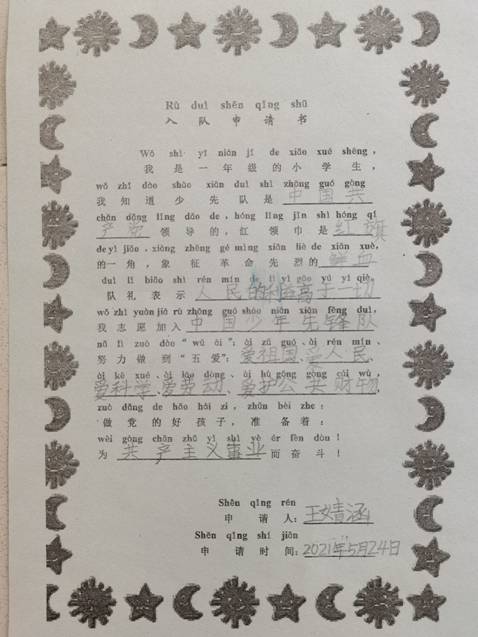 Rù duì shēn qǐng shū
入队申请书
Wǒ shì yī nián jí de xiǎo xué shēng,
我是一年级的小学生,
wǒ zhī dào shào xiān duì shì zhōng guó gòng
我知道少先队是中国共
chǎn dǎng lǐng dǎo de, hóng lǐng jīn shì hóng qí
产党领导的,红领巾是红旗
de yì jiǎo, xiàng zhēng gé mìng xiān liè de xiān xuè,
的一角,象征革命先烈的鲜血
duì lǐ biǎo shì rén mín lì yì gāo yú yí qiè,
队礼表示人民的利益高于一切
wǒ zhì yuàn jiā rù zhōng guó shào nián xiān fēng duì,
我志愿加入中国少年先锋队
nǔ lì zuò dào "wǔ ài": ài zǔ guó、ài rén mín、
努力做到“五爱”:爱祖国、爱人民、
ài kē xué、ài láo dòng、ài hù gōng gòng cái wù,
爱科学、爱劳动、爱护公共财物,
zuò dǎng de hǎo hái zi, zhǔn bèi zhe:
做党的好孩子,准备着:
wèi gòng chǎn zhǔ yì shì yè ér fèn dòu!
为共产主义事业而奋斗!
Shēn qǐng rén
申请人:王婧涵
Shēn qǐng shí jiān
申请时间:2021年5月24日